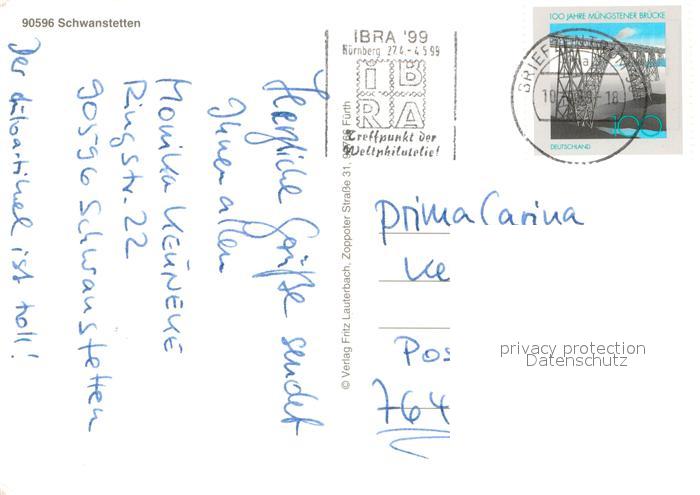 90596 Schwanstetten
Herzliche Grüße sendet
Ihnen allen
Monika KEÜNEKE
Ringstr. 22
90596 Schwanstetten
Der dibartikel ist toll!
© Verlag Fritz Lauterbach, Zoppoter Straße 31, 90766 Fürth
IBRA '99
Nürnberg 27.4. - 4.5.99
IB
RA
Treffpunkt der
Weltphilatelie!
BRIEFZENTRUM
18
100 JAHRE MÜNGSTENER BRÜCKE
100
DEUTSCHLAND
prima Carina
Ke
Pos
764
privacy protection
Datenschutz